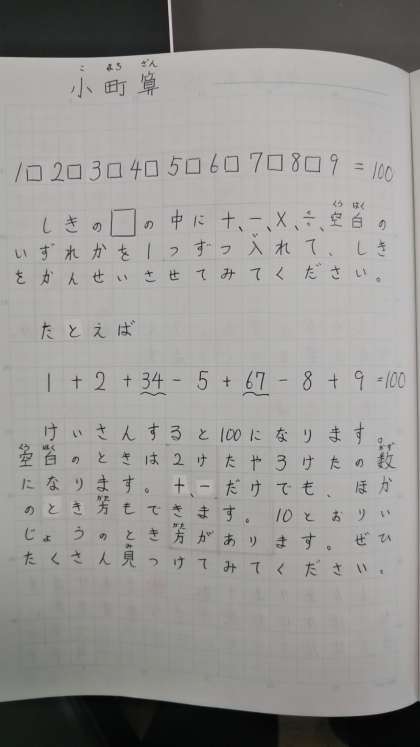 こまちざん
小町算
1□2□3□4□5□6□7□8□9=100
しきの□の中に+、-、×、÷、空白の
いずれかを1つずつ入れて、しき
をかんせいさせてみてください。
たとえば
1+2+34-5+67-8+9=100
けいさんすると100になります。
空白のときは2けたや3けたの数
になります。+、-だけでも、ほか
のとき方もできます。10とおりい
じょうのとき方があります。ぜひ
たくさん見つけてみてください。